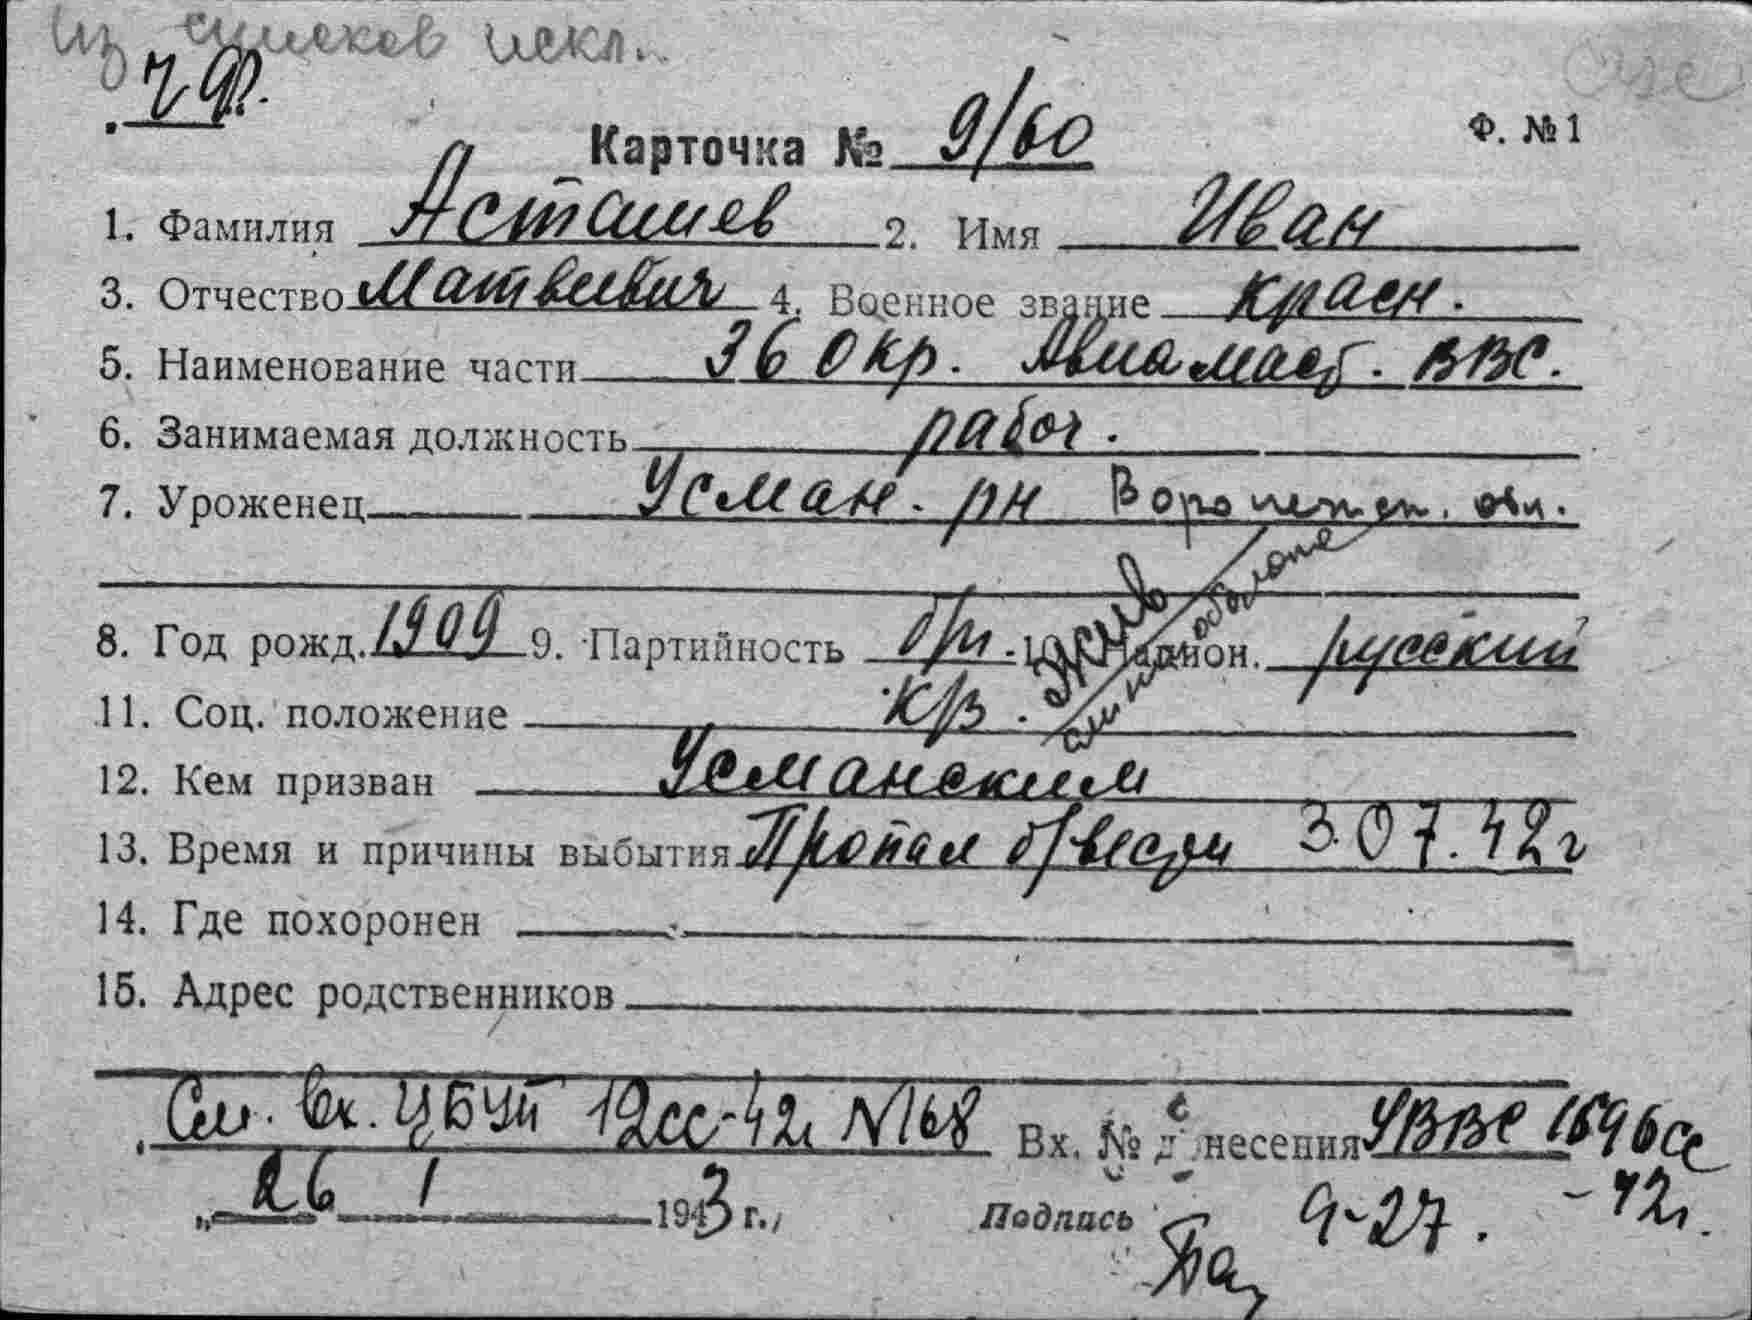 Из списков искл.
Карточка № 9/60 Ф. № 1
1. Фамилия Асташев 2. Имя Иван
3. Отчество Матвеевич 4. Военное звание красн.
5. Наименование части 36 окр. Авиамаст. ВВС.
6. Занимаемая должность рабоч.
7. Уроженец Усман. рн Воронежск. обл.
8. Год рожд. 1909 9. Партийность б/п. 10. Национ. русский
Жив
11. Соц. положение к/з.
12. Кем призван Усманским
13. Время и причины выбытия Пропал б/вести 3.07.42г
14. Где похоронен
15. Адрес родственников
См. вх. 12сс-42г №168 Вх. № донесения УВВС 1696сс
„26 1 1943 г. Подпись 9-27. -42г.